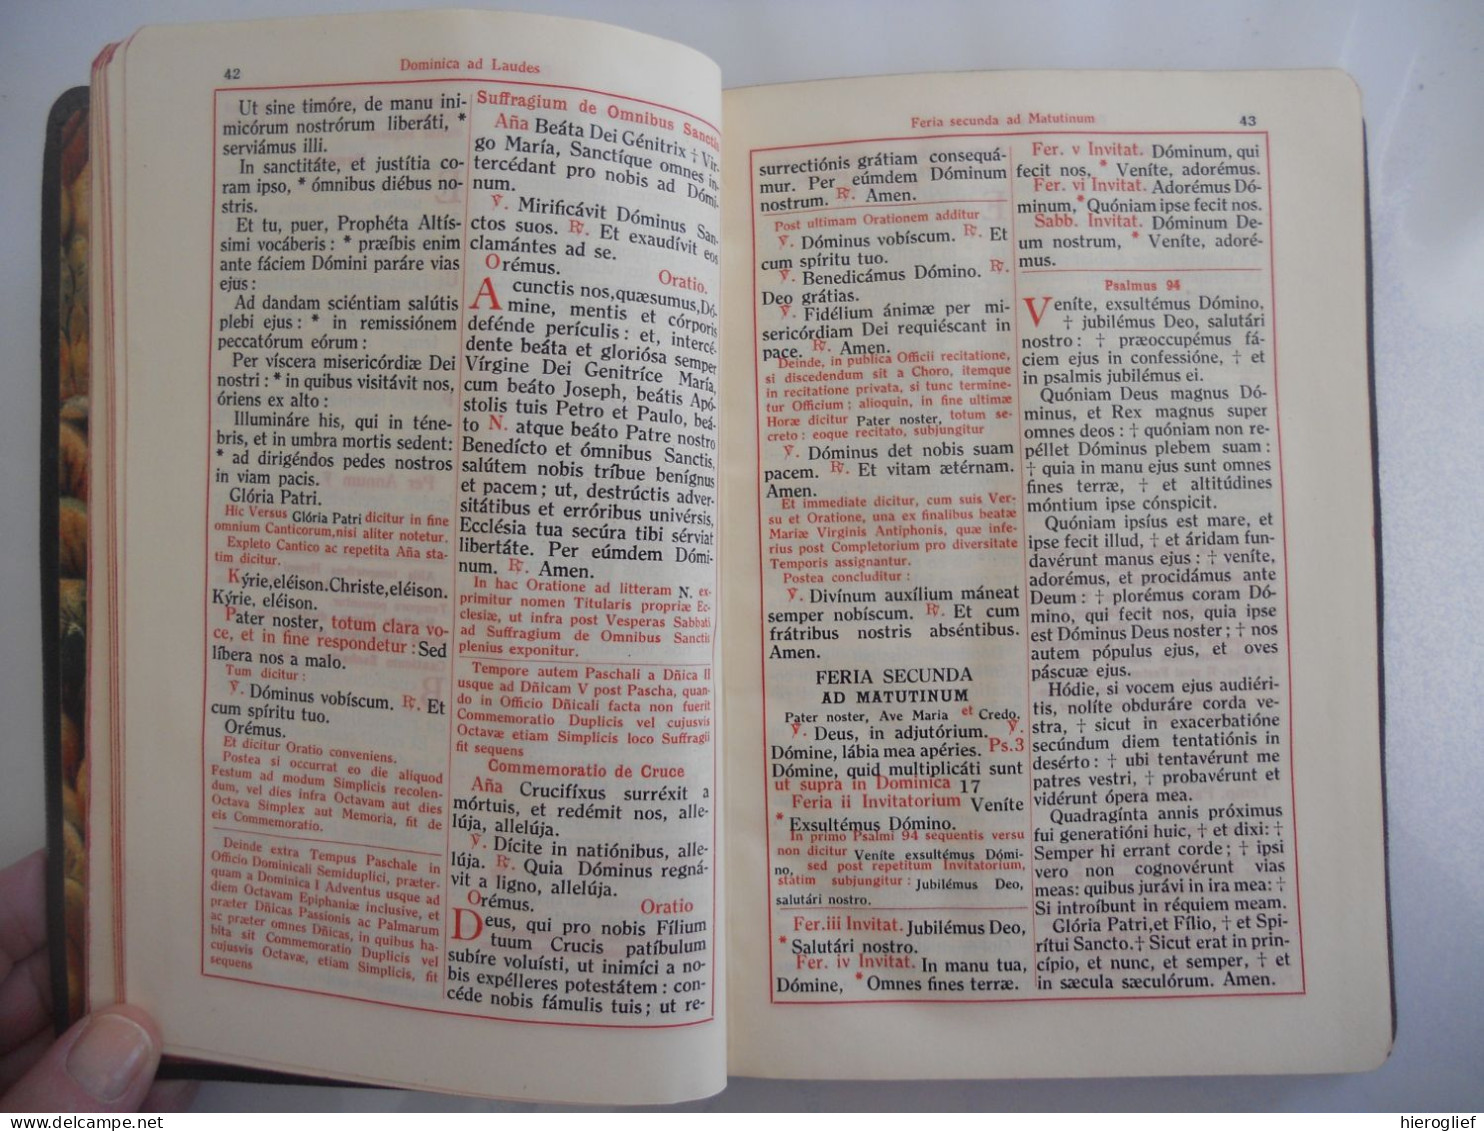 42
Dominica ad Laudes
Ut sine timóre, de manu ini-
micórum nostrórum liberáti, *
serviámus illi.
In sanctitáte, et justítia co-
ram ipso, * ómnibus diébus no-
stris.
Et tu, puer, Prophéta Altís-
simi vocáberis : * præíbis enim
ante fáciem Dómini paráre vias
ejus :
Ad dandam sciéntiam salútis
plebi ejus : * in remissiónem
peccatórum eórum :
Per víscera misericórdiæ Dei
nostri : * in quibus visitávit nos,
óriens ex alto :
Illumináre his, qui in téne-
bris, et in umbra mortis sedent:
* ad dirigéndos pedes nostros
in viam pacis.
Glória Patri.
Hic Versus Glória Patri dicitur in fine
omnium Canticorum, nisi aliter notetur.
Expleto Cantico ac repetita Aña sta-
tim dicitur.
Kýrie, eléison. Christe, eléison.
Kýrie, eléison.
Pater noster, totum clara vo-
ce, et in fine respondetur : Sed
líbera nos a malo.
Tum dicitur :
℣. Dóminus vobíscum. ℟. Et
cum spíritu tuo.
Orémus.
Et dicitur Oratio conveniens.
Postea si occurrat eo die aliquod
Festum ad modum Simplicis recolen-
dum, vel dies infra Octavam aut dies
Octava Simplex aut Memoria, fit de
eis Commemoratio.
Deinde extra Tempus Paschale in
Officio Dominicali Semiduplici, præter-
quam a Dominica I Adventus usque ad
diem Octavam Epiphaniæ inclusive, et
præter Dñicas Passionis ac Palmarum
ac præter omnes Dñicas, in quibus ha-
bita sit Commemoratio Duplicis vel
cujusvis Octavæ, etiam Simplicis, fit
sequens
Suffragium de Omnibus Sanctis
Aña Beáta Dei Génitrix † Vir-
go María, Sanctíque omnes in-
tercédant pro nobis ad Dómi-
num.
℣. Mirificávit Dóminus San-
ctos suos. ℟. Et exaudívit eos
clamántes ad se.
Orémus. Oratio.
A cunctis nos, quæsumus, Dó-
mine, mentis et córporis
defénde perículis : et, intercé-
dente beáta et gloriósa semper
Vírgine Dei Genitríce María,
cum beáto Joseph, beátis Apó-
stolis tuis Petro et Paulo, beá-
to N. atque beáto Patre nostro
Benedícto et ómnibus Sanctis,
salútem nobis tríbue benígnus
et pacem ; ut, destrúctis adver-
sitátibus et erróribus univérsis,
Ecclésia tua secúra tibi sérviat
libertáte. Per eúmdem Dómi-
num. ℟. Amen.
In hac Oratione ad litteram N. ex-
primitur nomen Titularis propriæ Ec-
clesiæ, ut infra post Vesperas Sabbati
ad Suffragium de Omnibus Sanctis
plenius exponitur.
Tempore autem Paschali a Dñica II
usque ad Dñicam V post Pascha, quan-
do in Officio Dñicali facta non fuerit
Commemoratio Duplicis vel cujusvis
Octavæ etiam Simplicis loco Suffragii
fit sequens
Commemoratio de Cruce
Aña Crucifíxus surréxit a
mórtuis, et redémit nos, alle-
lúja, allelúja.
℣. Dícite in natiónibus, alle-
lúja. ℟. Quia Dóminus regná-
vit a ligno, allelúja.
Orémus. Oratio
Deus, qui pro nobis Fílium
tuum Crucis patíbulum
subíre voluísti, ut inimíci a no-
bis expélleres potestátem : con-
céde nobis fámulis tuis ; ut re-
Feria secunda ad Matutinum
43
surrectiónis grátiam consequá-
mur. Per eúmdem Dóminum
nostrum. ℟. Amen.
Post ultimam Orationem additur
℣. Dóminus vobíscum. ℟. Et
cum spíritu tuo.
℣. Benedicámus Dómino. ℟.
Deo grátias.
℣. Fidélium ánimæ per mi-
sericórdiam Dei requiéscant in
pace. ℟. Amen.
Deinde, in publica Officii recitatione,
si discedendum sit a Choro, itemque
in recitatione privata, si tunc termine-
tur Officium ; alioquin, in fine ultimæ
Horæ dicitur Pater noster, totum se-
creto : eoque recitato, subjungitur
℣. Dóminus det nobis suam
pacem. ℟. Et vitam ætérnam.
Amen.
Et immediate dicitur, cum suis Ver-
su et Oratione, una ex finalibus beatæ
Mariæ Virginis Antiphonis, quæ infe-
rius post Completorium pro diversitate
Temporis assignantur.
Postea concluditur :
℣. Divínum auxílium máneat
semper nobíscum. ℟. Et cum
frátribus nostris abséntibus.
Amen.
FERIA SECUNDA
AD MATUTINUM
Pater noster, Ave Maria et Credo.
℣. Deus, in adjutórium. ℣.
Dómine, lábia mea apéries. Ps.3
Dómine, quid multiplicáti sunt
ut supra in Dominica 17
Feria ii Invitatorium Veníte
* Exsultémus Dómino.
In primo Psalmi 94 sequentis versu
non dicitur Veníte exsultémus Dómi-
no, sed post repetitum Invitatorium,
statim subjungitur : Jubilémus Deo,
salutári nostro.
Fer.iii Invitat. Jubilémus Deo,
* Salutári nostro.
Fer. iv Invitat. In manu tua,
Dómine, * Omnes fines terræ.
Fer. v Invitat. Dóminum, qui
fecit nos, * Veníte, adorémus.
Fer. vi Invitat. Adorémus Dó-
minum, * Quóniam ipse fecit nos.
Sabb. Invitat. Dóminum De-
um nostrum, * Veníte, adoré-
mus.
Psalmus 94
Veníte, exsultémus Dómino,
† jubilémus Deo, salutári
nostro : † præoccupémus fá-
ciem ejus in confessióne, † et
in psalmis jubilémus ei.
Quóniam Deus magnus Dó-
minus, et Rex magnus super
omnes deos : † quóniam non re-
péllet Dóminus plebem suam :
† quia in manu ejus sunt omnes
fines terræ, † et altitúdines
móntium ipse cónspicit.
Quóniam ipsíus est mare, et
ipse fecit illud, † et áridam fun-
davérunt manus ejus : † veníte,
adorémus, et procidámus ante
Deum : † plorémus coram Dó-
mino, qui fecit nos, quia ipse
est Dóminus Deus noster ; † nos
autem pópulus ejus, et oves
páscuæ ejus.
Hódie, si vocem ejus audié-
ritis, nolíte obduráre corda ve-
stra, † sicut in exacerbatióne
secúndum diem tentatiónis in
desérto : † ubi tentavérunt me
patres vestri, † probavérunt et
vidérunt ópera mea.
Quadragínta annis próximus
fui generatióni huic, † et dixi: †
Semper hi errant corde ; † ipsi
vero non cognovérunt vias
meas: quibus jurávi in ira mea: †
Si introíbunt in réquiem meam.
Glória Patri, et Fílio, † et Spi-
rítui Sancto. † Sicut erat in prin-
cípio, et nunc, et semper, † et
in sæcula sæculórum. Amen.
hieroglief